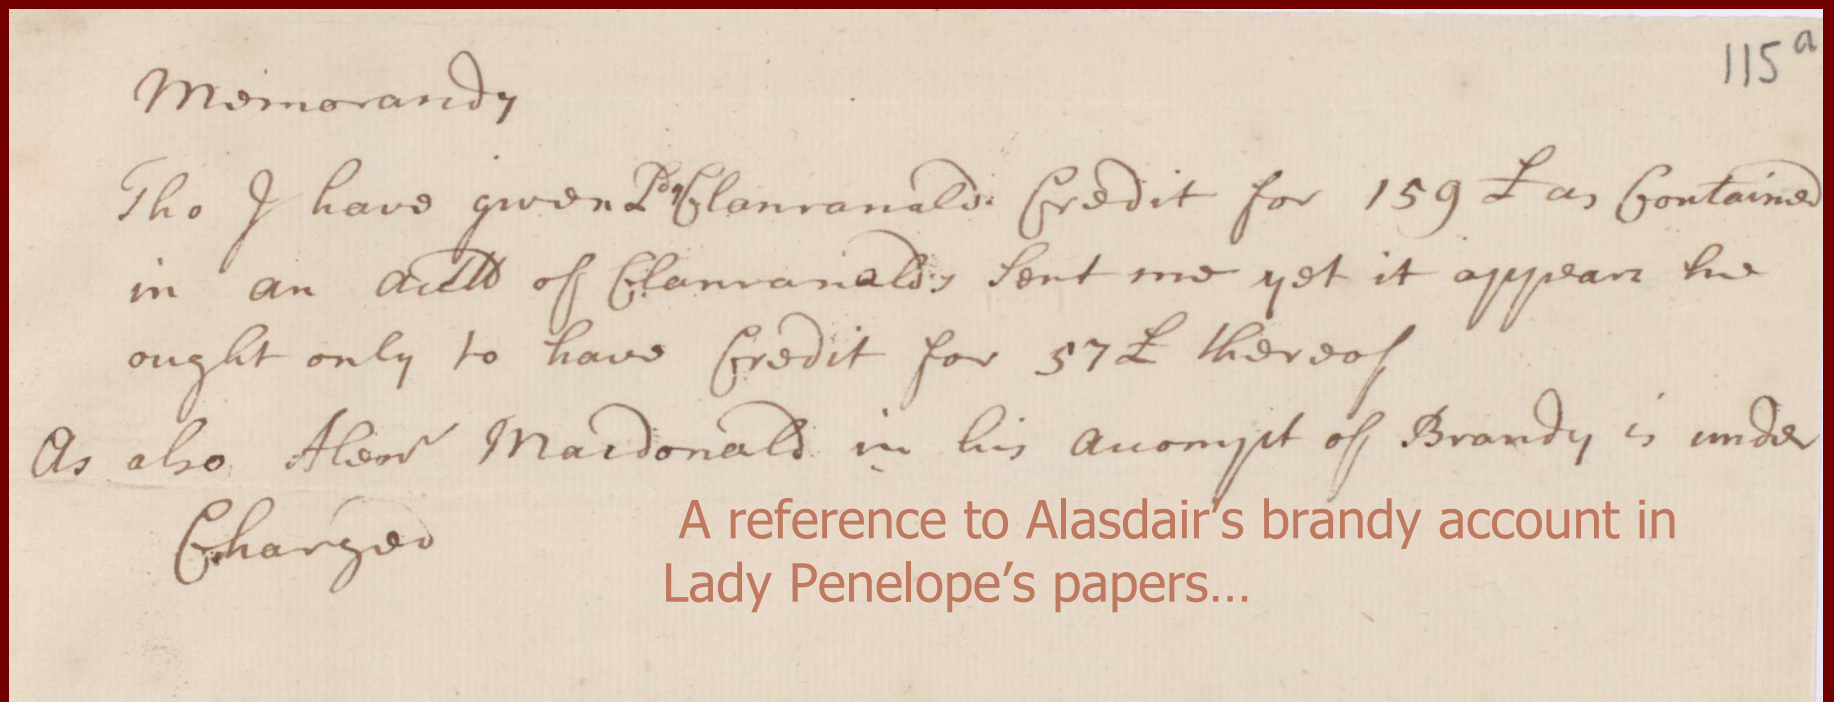 115a
Memorandy
Tho I have given Ldy Clanranald Credit for 159 £ as Contained
in an Actt of Clanranalds sent me yet it appears he
ought only to have Credit for 57 £ thereof
As also Alexr Macdonald in his Accompt of Brandy is under
Charged
A reference to Alasdair's brandy account in
Lady Penelope's papers...